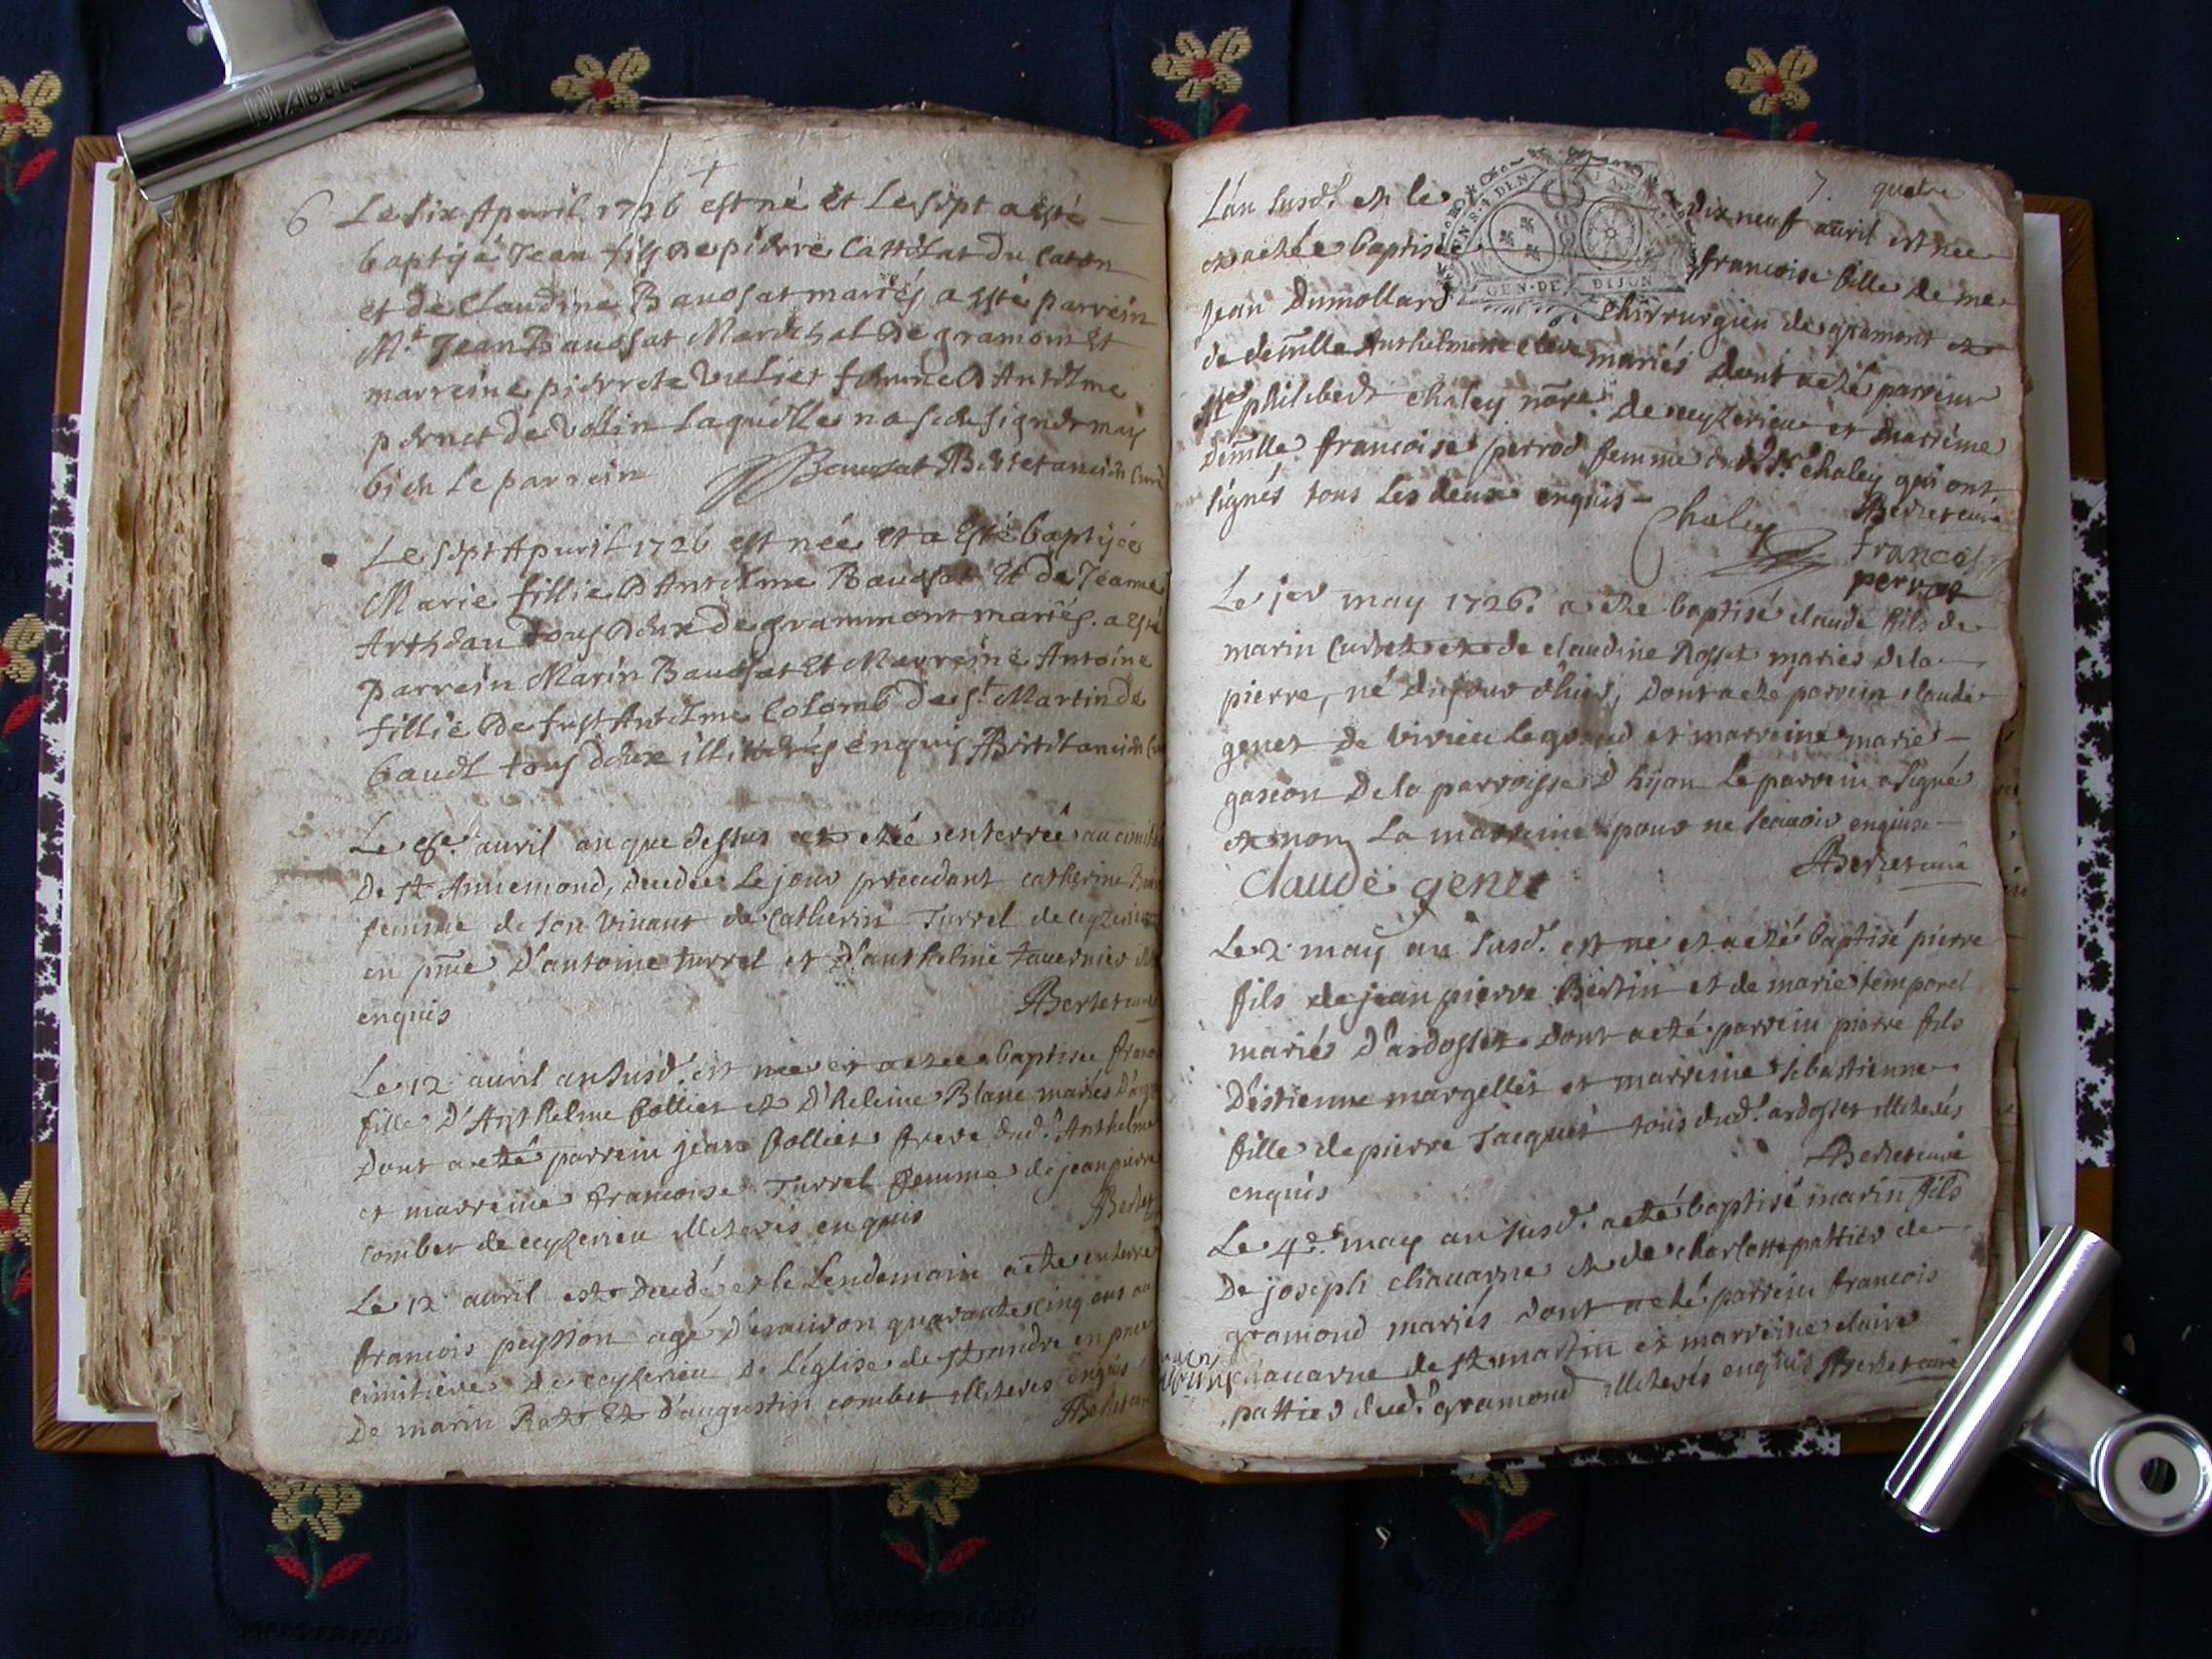 6 Le six Apuril 1726 est né et Le sept a esté
baptijé Jean fils de pierre Cattelat du Caton
et de Claudine Baudsat mariés a esté parrein
Mre Jean Baudsat Mareschal de gramont et
marreine pierrete Vulliet femme D Antelme
pernet de Vollin laquelle na sceu signer mais
bien Le parrein Baudsat Bertet ancien Curé
Le sept Apuril 1726 est née et a esté baptijée
Marie fillie D Antelme Baudsat et de Jeanne
Arthdau tous deux de grammont mariés. a esté
parrein Marin Baudsat et Marreine Antoine
fillie de fust Antelme Colomb de st Martin de
bauel tous deux illiterés enquis Bertet ancien
Le 8e auril an que dessus a etée enterrée au
De st Annemond, decedée Le jour precedant catherine
femme de son viuant de Catherin Turrel de ceyzerieu
en pnce D'antoine turrel et D'anthelme tauernier
enquis Bertet curé
Le 12 auril an susd. est née et a etée baptisée
fille D'Anthelme folliet et D'heleine Blanc mariés
Dont a eté parrein jean folliet frere dud. Anthelme
et marreine francoise Turrel femme de jean pierre
combet de ceyzerieu illiterés enquis Bertet
Le 12 auril est decedé et le Lendemain a eté enterré
francois peysson agé D'enuiron quarante cinq ans au
cimitiere de ceyzerieu de L'église de st andré en pnce
De marin Rate et d'augustin combet illiterés enquis
Bertet curé
7. quatre
L'an susd. et le dix neuf auril est née
et a etée baptisée francoise fille de me
GEN·DE DIJON
Jean Dumollard chirrurgien de gramont et
de demlle Anthelmette cleue mariés Dont a eté parrein
Mre philibert chaley nore. de ceyzerieu et marreine
Demlle francoise perrod femme dud. Sr. chaley qui ont
signés tous Les deux enquis Bertet curé
Chaley francoise
perrod
Le jer may 1726. a eté baptisé claude fils de
marin Curtet et de claudine Rosset mariés de la
pierre, né du jour d'hier, Dont a eté parrein claude
genet de virieu le grand et marreine marie
gascon De la parroisse D hijon Le parrein a signé
et non La marreine pour ne scauoir enquise
Bertet curé
claude genet
Le 2 may an susd. est né et a eté baptisé pierre
fils de jean pierre Bertin et de marie temporel
mariés D'ardosset Dont a eté parrein pierre fils
D'estienne margellet et marreine sebastienne
fille de pierre Jacquet tous dud. ardosset illiterés
enquis Bertet curé
Le 4e. may an susd. a eté baptisé marin fils
De joseph chauarne et de charlotte pattier de
gramond mariés dont a eté parrein francois
chauarne de st martin et marreine claire
pattier dud. gramond illiterés enquis Bertet curé